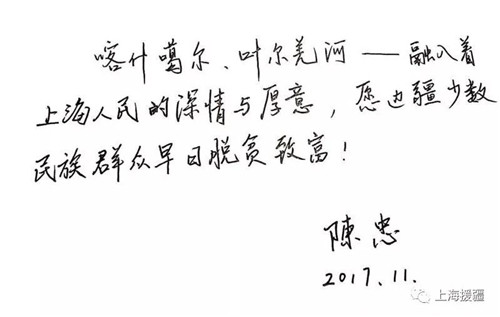 喀什噶尔、叶尔羌河——融入着
上海人民的深情与厚意，愿边疆少数
民族群众早日脱贫致富！
陈忠
2017.11.
上海援疆